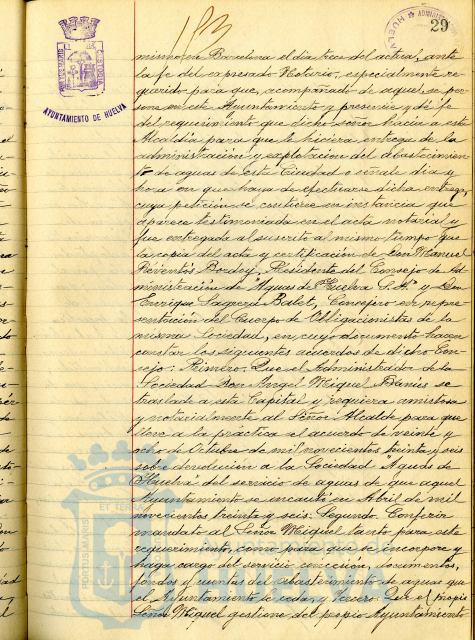 153
29
AYUNTAMIENTO DE HUELVA
mismo en Barcelona el dia trece del actual, ante
la fé del expresado Notario, especialmente re-
querido para que, acompañado de aquel, se per-
sone en este Ayuntamiento y presencie y dé fé
del requerimiento que dicho señor hacia a esta
Alcaldía para que le hiciera entrega de la
administración y explotacion del abastecimien-
to de aguas de esta Ciudad o señale dia y
hora en que haya de efectuarse dicha entrega,
cuya petición se contiene en instancia que
aparece testimoniada en el acta notarial y
fue entregada al suscrito al mismo tiempo que
la copia del acta y certificación de Don Manuel
Reventós Bordoy, Presidente del Consejo de Ad-
ministración de Aguas de Huelva S.A. y Don
Enrique Sagrera Balet, Consejero en repre-
sentación del Cuerpo de Obligacionistas de la
misma Sociedad, en cuyo documento hacen
constar los siguientes acuerdos de dicho Con-
sejo: Primero. Que el Administrador de la
Sociedad Don Angel Miguel se
traslade a esta Capital y requiera amistosa
y notarialmente al Señor Alcalde para que
lleve a la práctica el acuerdo de veinte y
ocho de Octubre de mil novecientos treinta y seis
sobre devolución a la Sociedad Aguas de
Huelva del servicio de aguas de que aquel
Ayuntamiento se incautó en Abril de mil
novecientos treinta y seis: Segundo. Conferir
mandato al Señor Miguel tanto para este
requerimiento como para que se incorpore y
haga cargo del servicio concesión, documentos,
fondos y cuentas del abastecimiento de aguas que
el Ayuntamiento le ceda; y Tercero. Que el propio
Señor Miguel gestione del propio Ayuntamiento